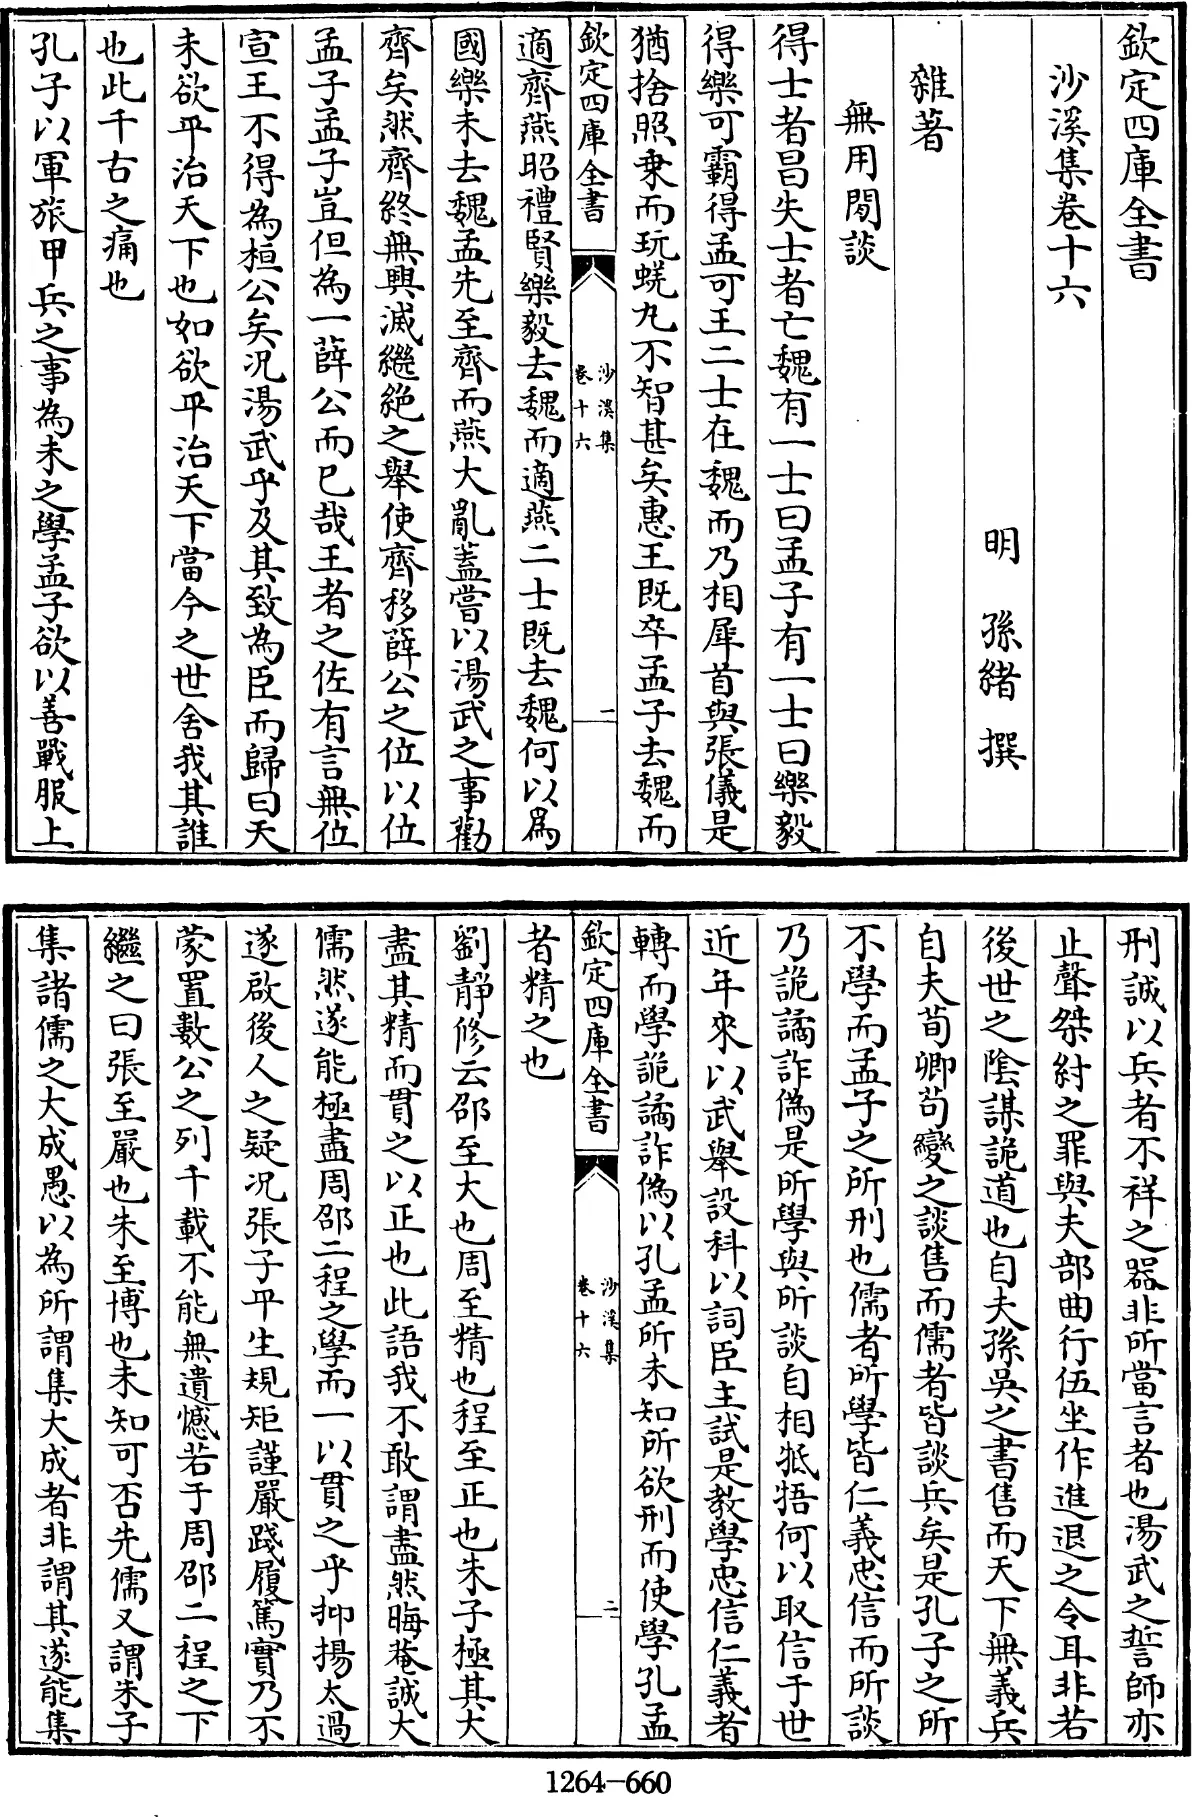 欽定四庫全書
沙溪集卷十六
明 孫緒 撰
雜著
無用閒談
得士者昌失士者亡魏有一士曰孟子有一士曰樂毅
得樂可霸得孟可王二士在魏而乃相犀首與張儀是
猶捨照乗而玩蜣丸不智甚矣惠王既卒孟子去魏而
欽定四庫全書
沙溪集
卷十六
一
適齊燕昭禮賢樂毅去魏而適燕二士既去魏何以為
國樂未去魏孟先至齊而燕大亂蓋嘗以湯武之事勸
齊矣然齊終無興滅繼絶之舉使齊移薛公之位以位
孟子孟子豈但為一薛公而已哉王者之佐有言無位
宣王不得為桓公矣况湯武乎及其致為臣而歸曰天
未欲平治天下也如欲平治天下當今之世舍我其誰
也此千古之痛也
孔子以軍旅甲兵之事為未之學孟子欲以善戰服上
刑誠以兵者不祥之器非所當言者也湯武之誓師亦
止聲桀紂之罪與夫部曲行伍坐作進退之令耳非若
後世之陰謀詭道也自夫孫吳之書售而天下無義兵
自夫荀卿茍變之談售而儒者皆談兵矣是孔子之所
不學而孟子之所刑也儒者所學皆仁義忠信而所談
乃詭譎詐偽是所學與所談自相牴牾何以取信于世
近年來以武舉設科以詞臣主試是教學忠信仁義者
轉而學詭譎詐偽以孔孟所未知所欲刑而使學孔孟
欽定四庫全書
沙溪集
卷十六
二
者精之也
劉靜修云邵至大也周至精也程至正也朱子極其大
盡其精而貫之以正也此語我不敢謂盡然晦菴誠大
儒然遂能極盡周邵二程之學而一以貫之乎抑揚太過
遂啟後人之疑况張子平生規矩謹嚴踐履篤實乃不
蒙置數公之列千載不能無遺憾若于周邵二程之下
繼之曰張至嚴也朱至博也未知可否先儒又謂朱子
集諸儒之大成愚以為所謂集大成者非謂其遂能集
1264-660